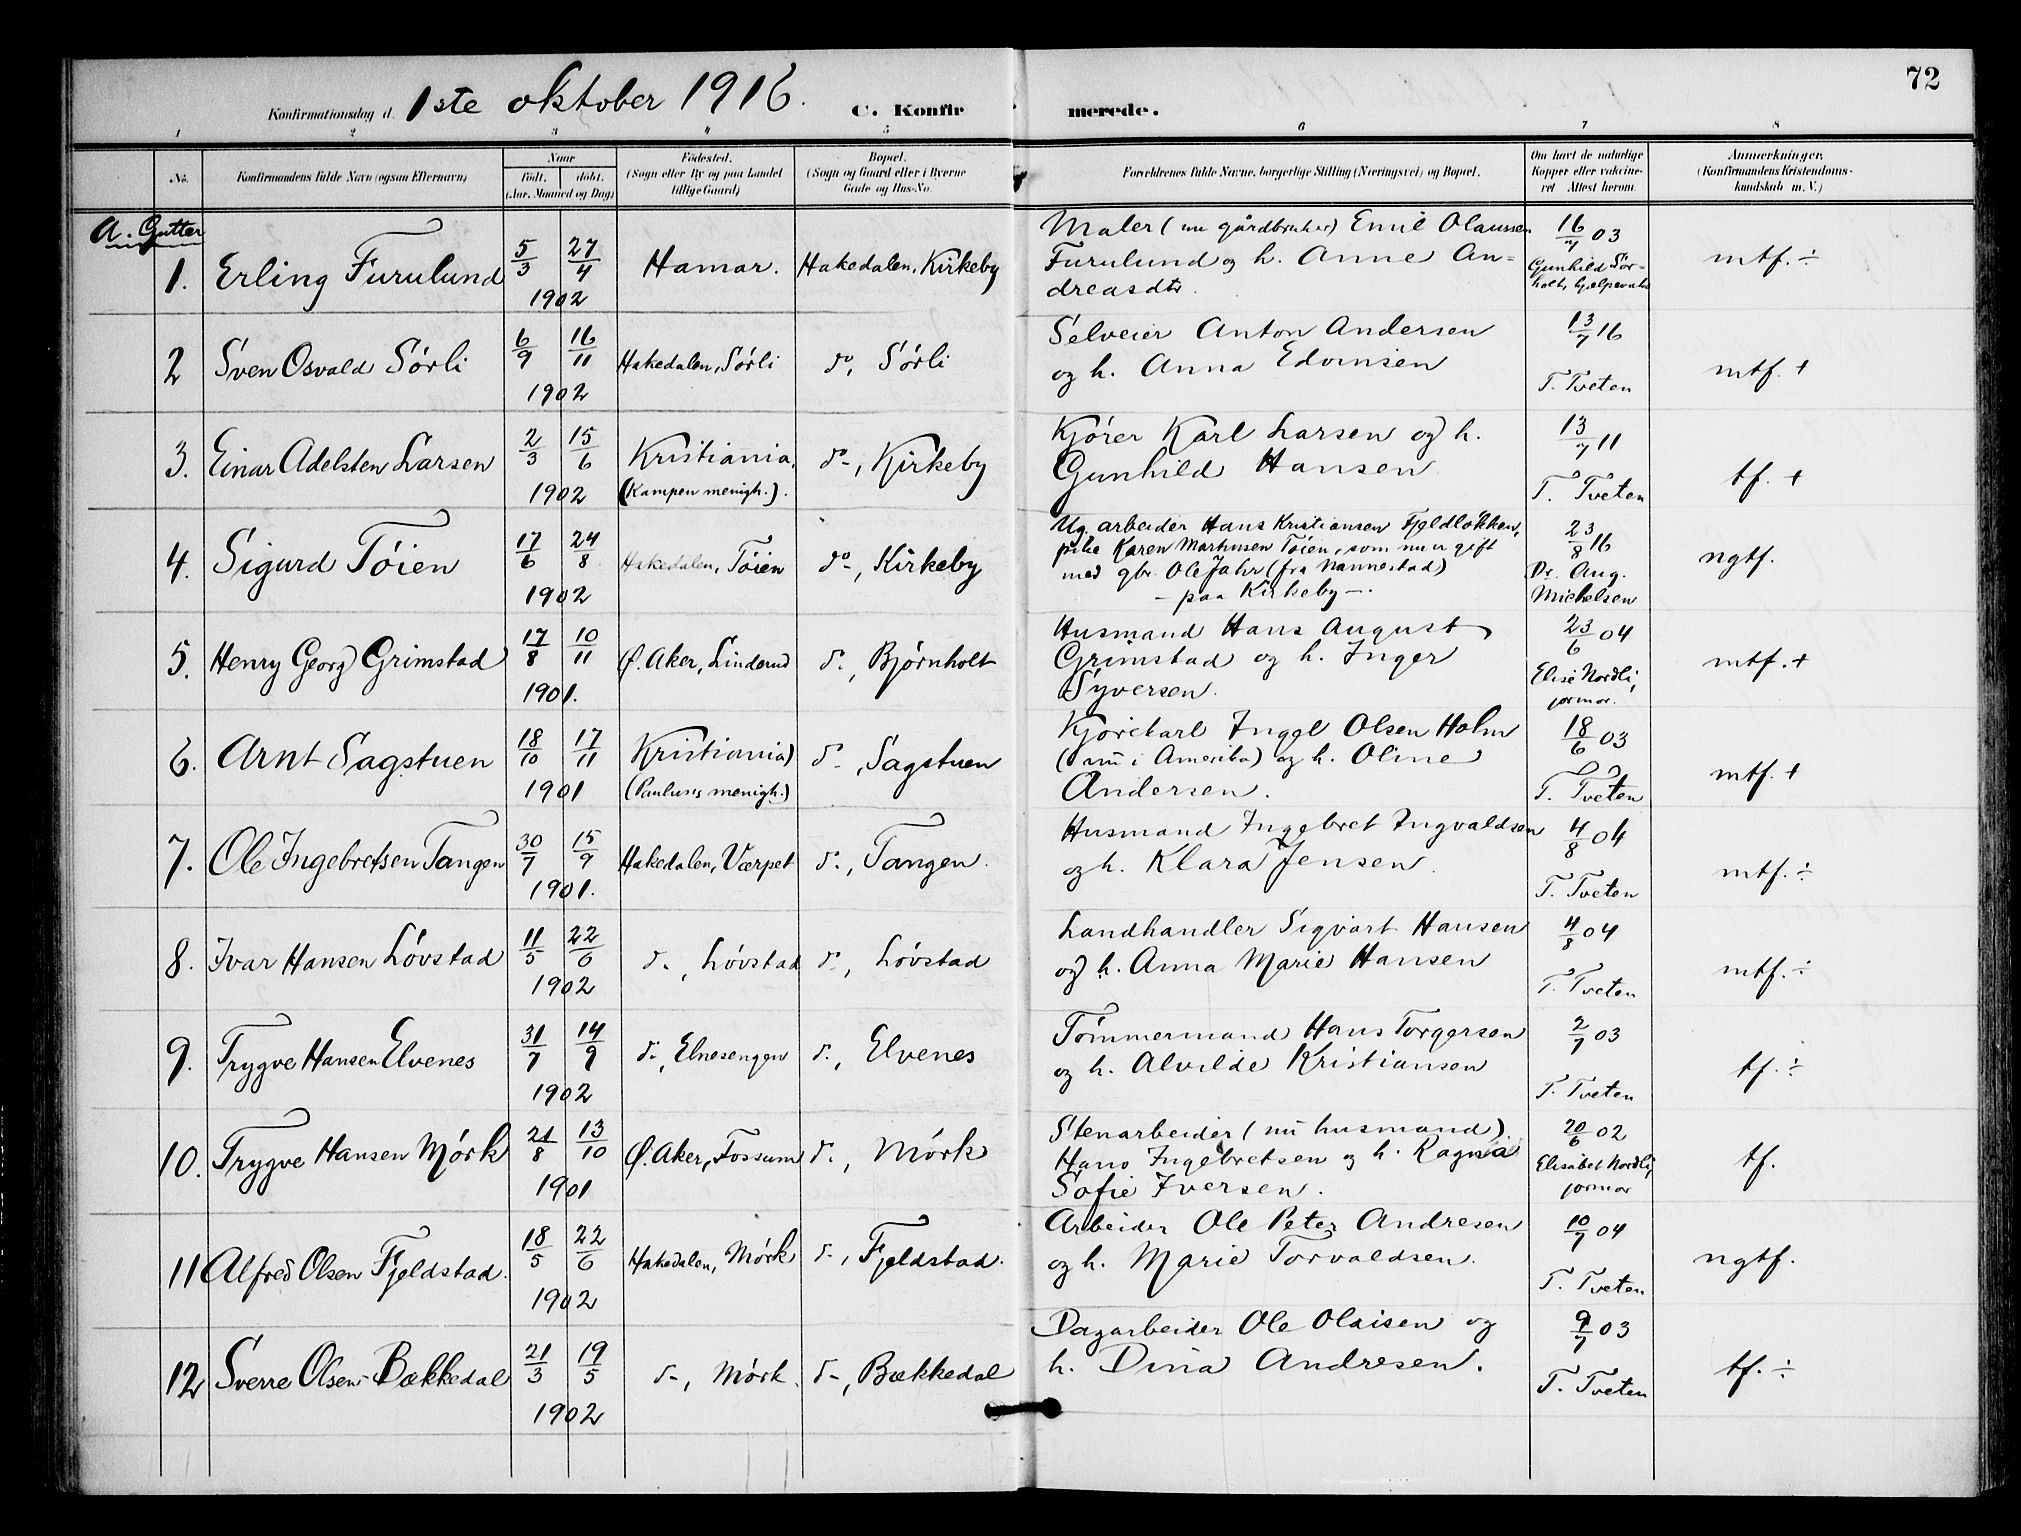 72
Konfirmationsdag d. 1ste oktober 1916. C. Konfirmerede.
1 2 3 4 5 6 7 8
No. Konfirmandens fulde Navn (ogsaa Efternavn) Naar Født, døbt. (Aar, Maaned og Dag) Fødested. (Sogn eller By og paa Landet tillige Gaard) Bopæl. (Sogn og Gaard eller i Byerne Gade og Hus-No. Forældrenes fulde Navne, borgerlige Stilling (Næringsvei) og Bopæl. Om havt de naturlige Kopper eller vakcineret Attest herom. Anmerkninger. (Konfirmandens Kristendomskundskab m. V.)
A. Gutter
1. Erling Furulund 5/3 27/4 1902 Hamar. Hakedalen, Kirkeby Maler (nu gårdbruker) Emil Olaussen
Furulund og h. Anne An=
dreasdtr.
16/7 03
Gunhild Sør=
holt, hjelpevaks
mtf. ÷
2 Sven Osvald Sørli 6/9 16/11 1902 Hakedalen, Sørli do, Sørli Selveier Anton Andersen
og h. Anna Edvinsen
13/7 16
T. Tveten
mtf. +
3. Einar Adelsten Larsen 2/3 15/6 1902 Kristiania,
(Kampen menigh.).
do-, Kirkeby Kjører Karl Larsen og h.
Gunhild Hansen
13/7 11
T. Tveten
tf. +
4. Sigurd Töien 17/6 24/8 1902 Hakedalen, Töien do-, Kirkeby Ug. arbeider Hans Kristiansen Fjeldløkken,
pike Karen Marthinsen Töien, som nu er gift
med gbr. Ole Jahr (fra Nannestad)
- paa Kirkeby -.
23/8 16
Dr. Aug.
Michelsen
ngtf.
5. Henry Georg Grimstad 17/8 10/11 1901. Ø. Aker, Linderud d-, Bjørnholt Husmand Hans August
Grimstad og h. Inger
Syversen.
23/6 04
Elise Nordli,
jormor.
mtf. +
6. Arnt Sagstuen 18/10 17/11 1901 Kristiania
(Paulus menigh.)
do-, Sagstuen Kjørekarl Inggl Olsen Holm
(nu i Amerika) og h. Oline
Andersen.
18/6 03
T. Tveten
mtf. +
7. Ole Ingebretsen Tangen 30/7 15/9 1901. Hakedalen, Værpet do-, Tangen. Husmand Ingebret Ingvaldsen
og h. Klara Jensen.
4/8 04
T. Tveten
mtf. ÷
8. Ivar Hansen Løvstad 11/5 22/6 1902 d-, Løvstad do-, Løvstad Landhandler Sigvart Hansen
og h. Anna Marie Hansen
4/8 04
T. Tveten
mtf. ÷
9. Trygve Hansen Elvenes 31/7 14/9 1902 d-, Elnesengen d-, Elvenes Tömmermand Hans Torgersen
og h. Alvilde Kristiansen
2/7 03
T. Tveten
tf. ÷
10. Trygve Hansen Mørk 21/8 13/10 1901 Ø. Aker, Fossum d-, Mørk Stenarbeider (nu husmand)
Hans Ingebretsen og h. Ragna
Sofie Iversen.
20/6 02
Elisabet Nordli,
jormor
tf.
11 Alfred Olsen Fjeldstad. 18/5 22/6 1902 Hakedalen, Mørk d-, Fjeldstad. Arbeider Ole Peter Andresen
og h. Marie Torvaldsen.
10/7 04
T. Tveten
ngtf.
12 Sverre Olsen Bækkedal 21/3 19/5 1902 d-, Mørk. d-, Bækkedal Dagarbeider Ole Olaisen og
h. Dina Andresen.
9/7 03
T. Tveten
tf. ÷